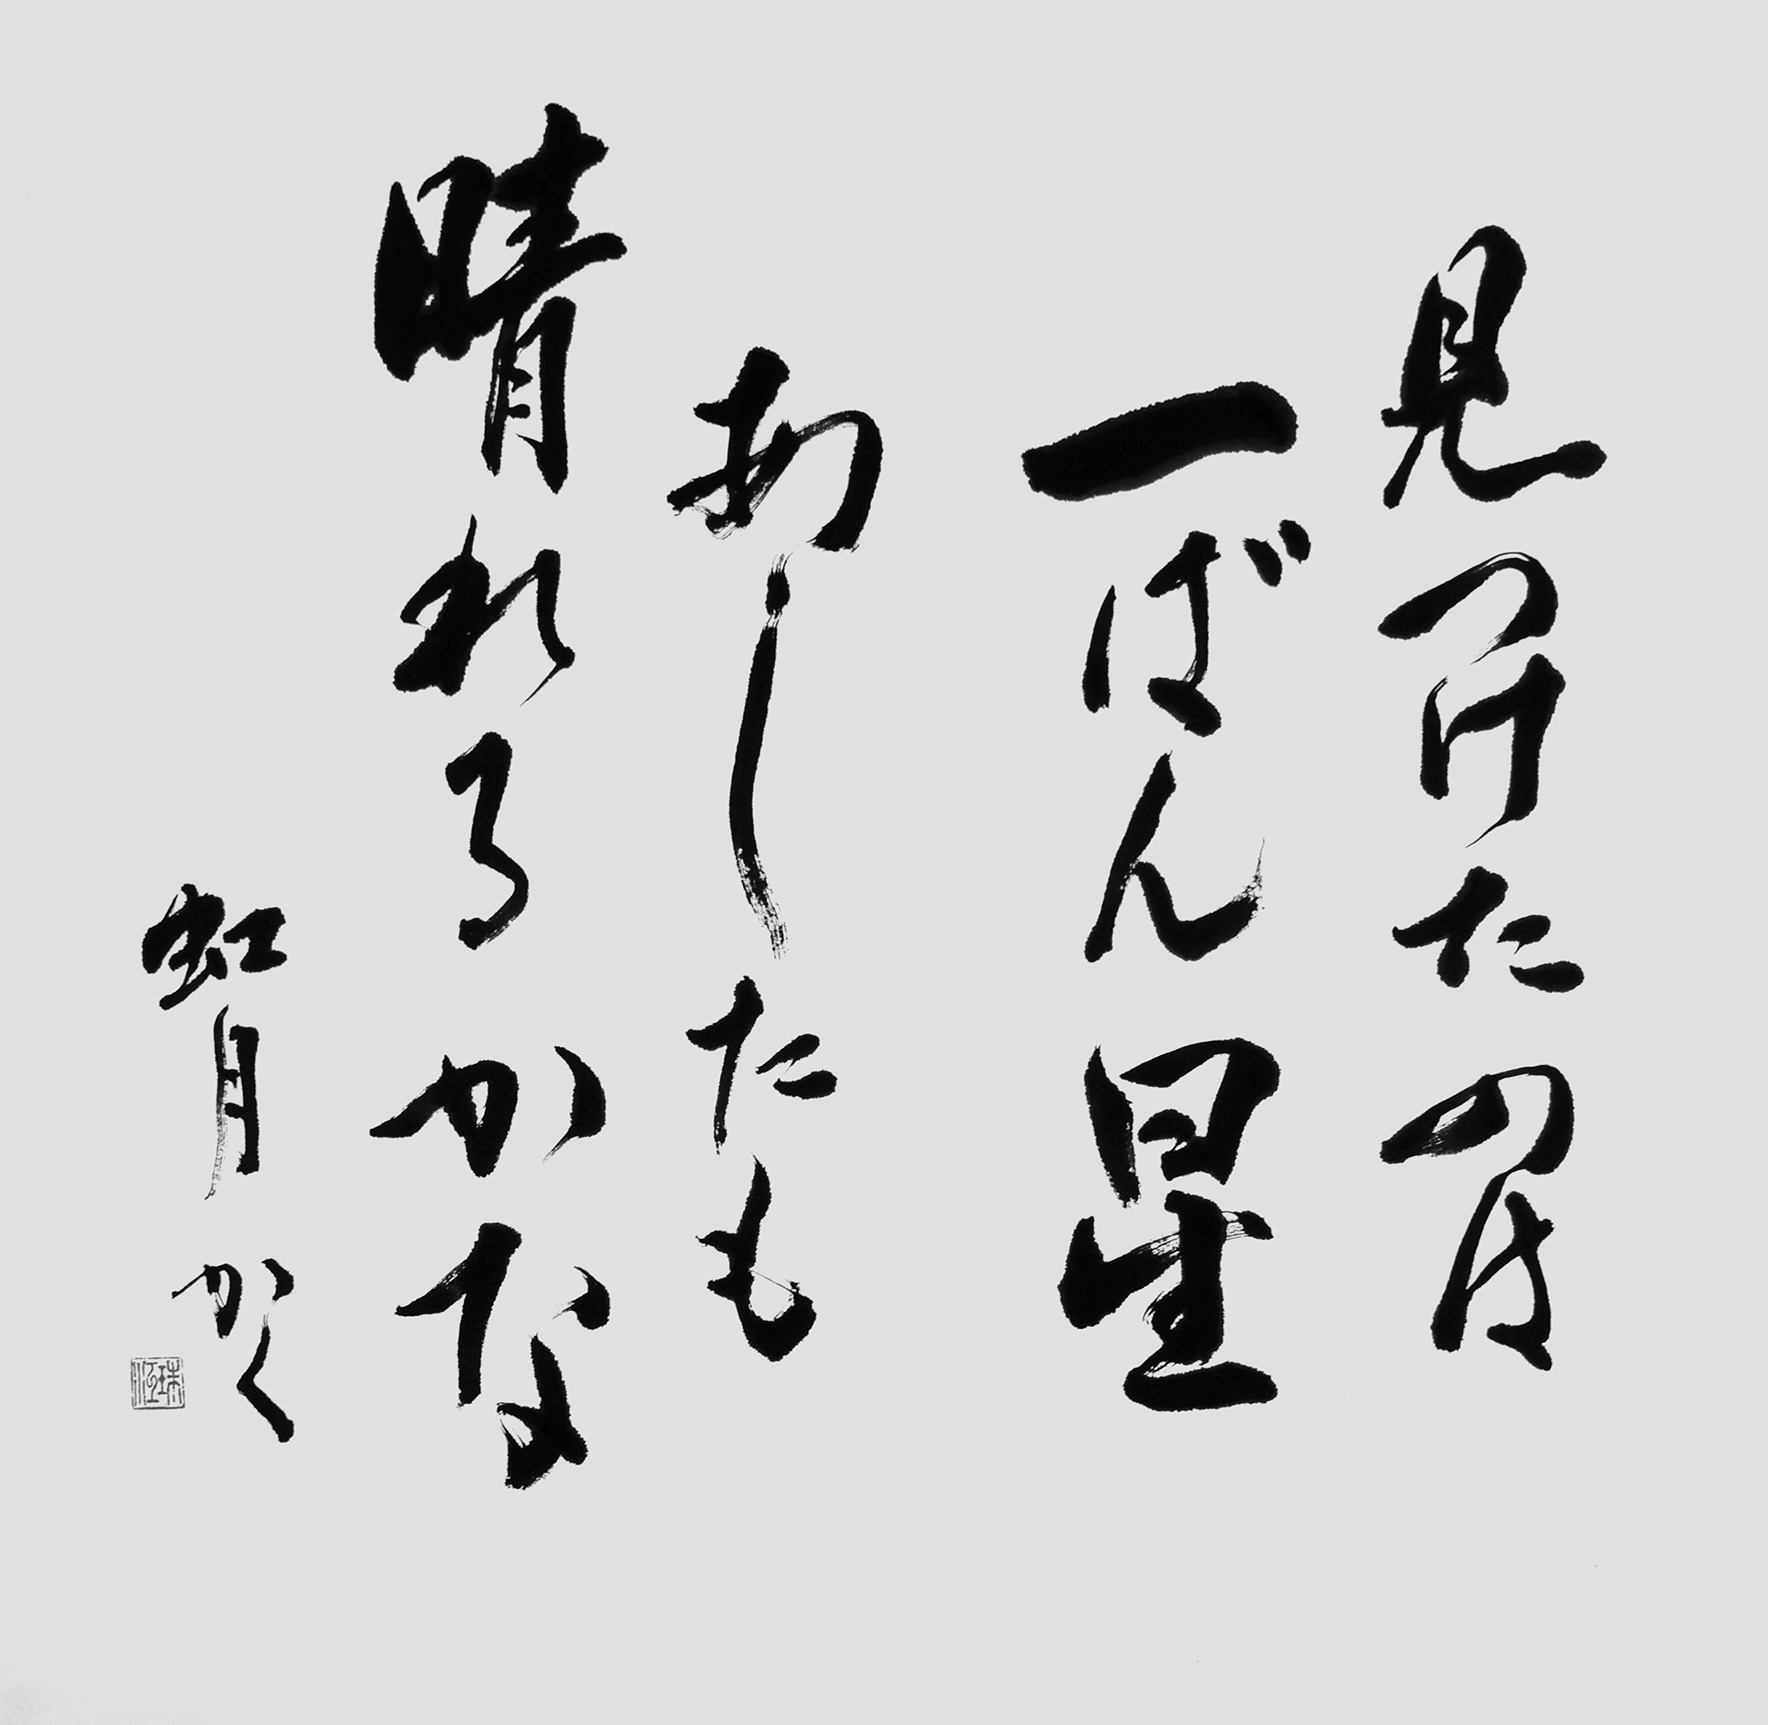 見つけたのは
一ばん星
あしたも
晴れるかな
虹月かく